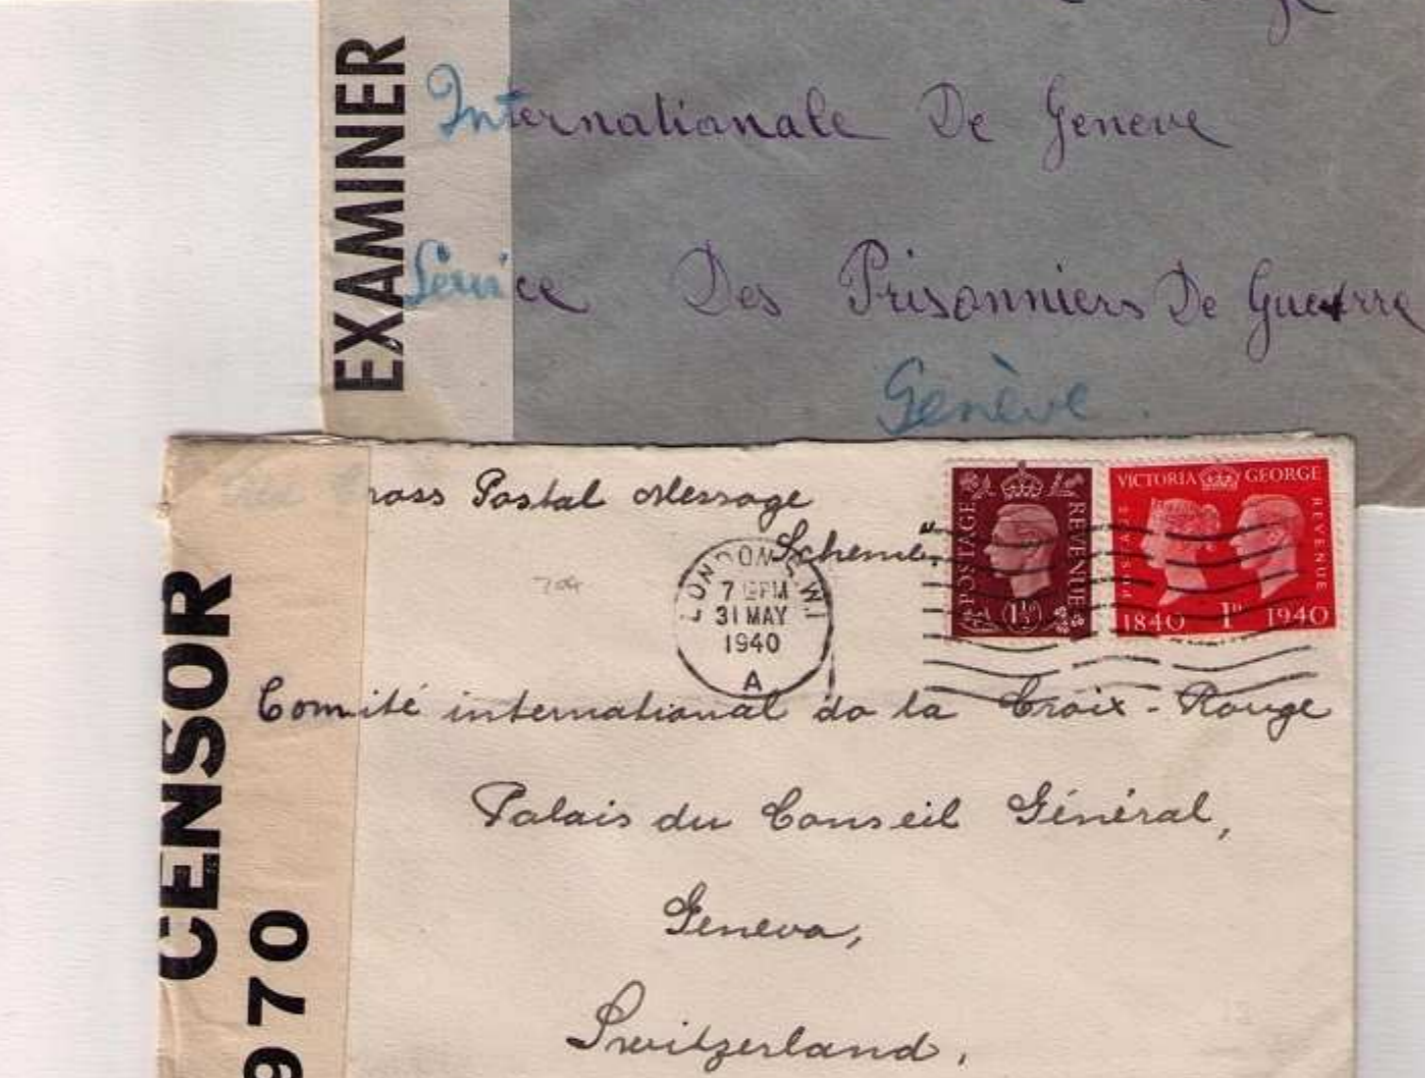 EXAMINER
Internationale De Geneve
Service Des Prisonniers De Guerre
Genève.
ross Postal Message
Scheme"
LONDON S.W.1
7 PM
31 MAY
1940
A
POSTAGE REVENUE
1½D
VICTORIA GEORGE
POSTAGE REVENUE
1840 1D 1940
Comité international do la Croix-Rouge
Palais du Conseil Général,
Geneva,
Switzerland.
CENSOR
970